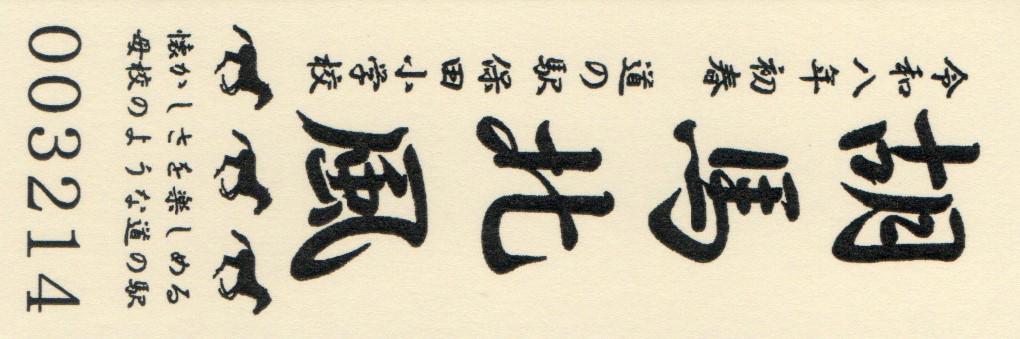 令和八年初春
道の駅保田小学校
胡馬北風
懐かしさを楽しめる
母校のような道の駅
003214